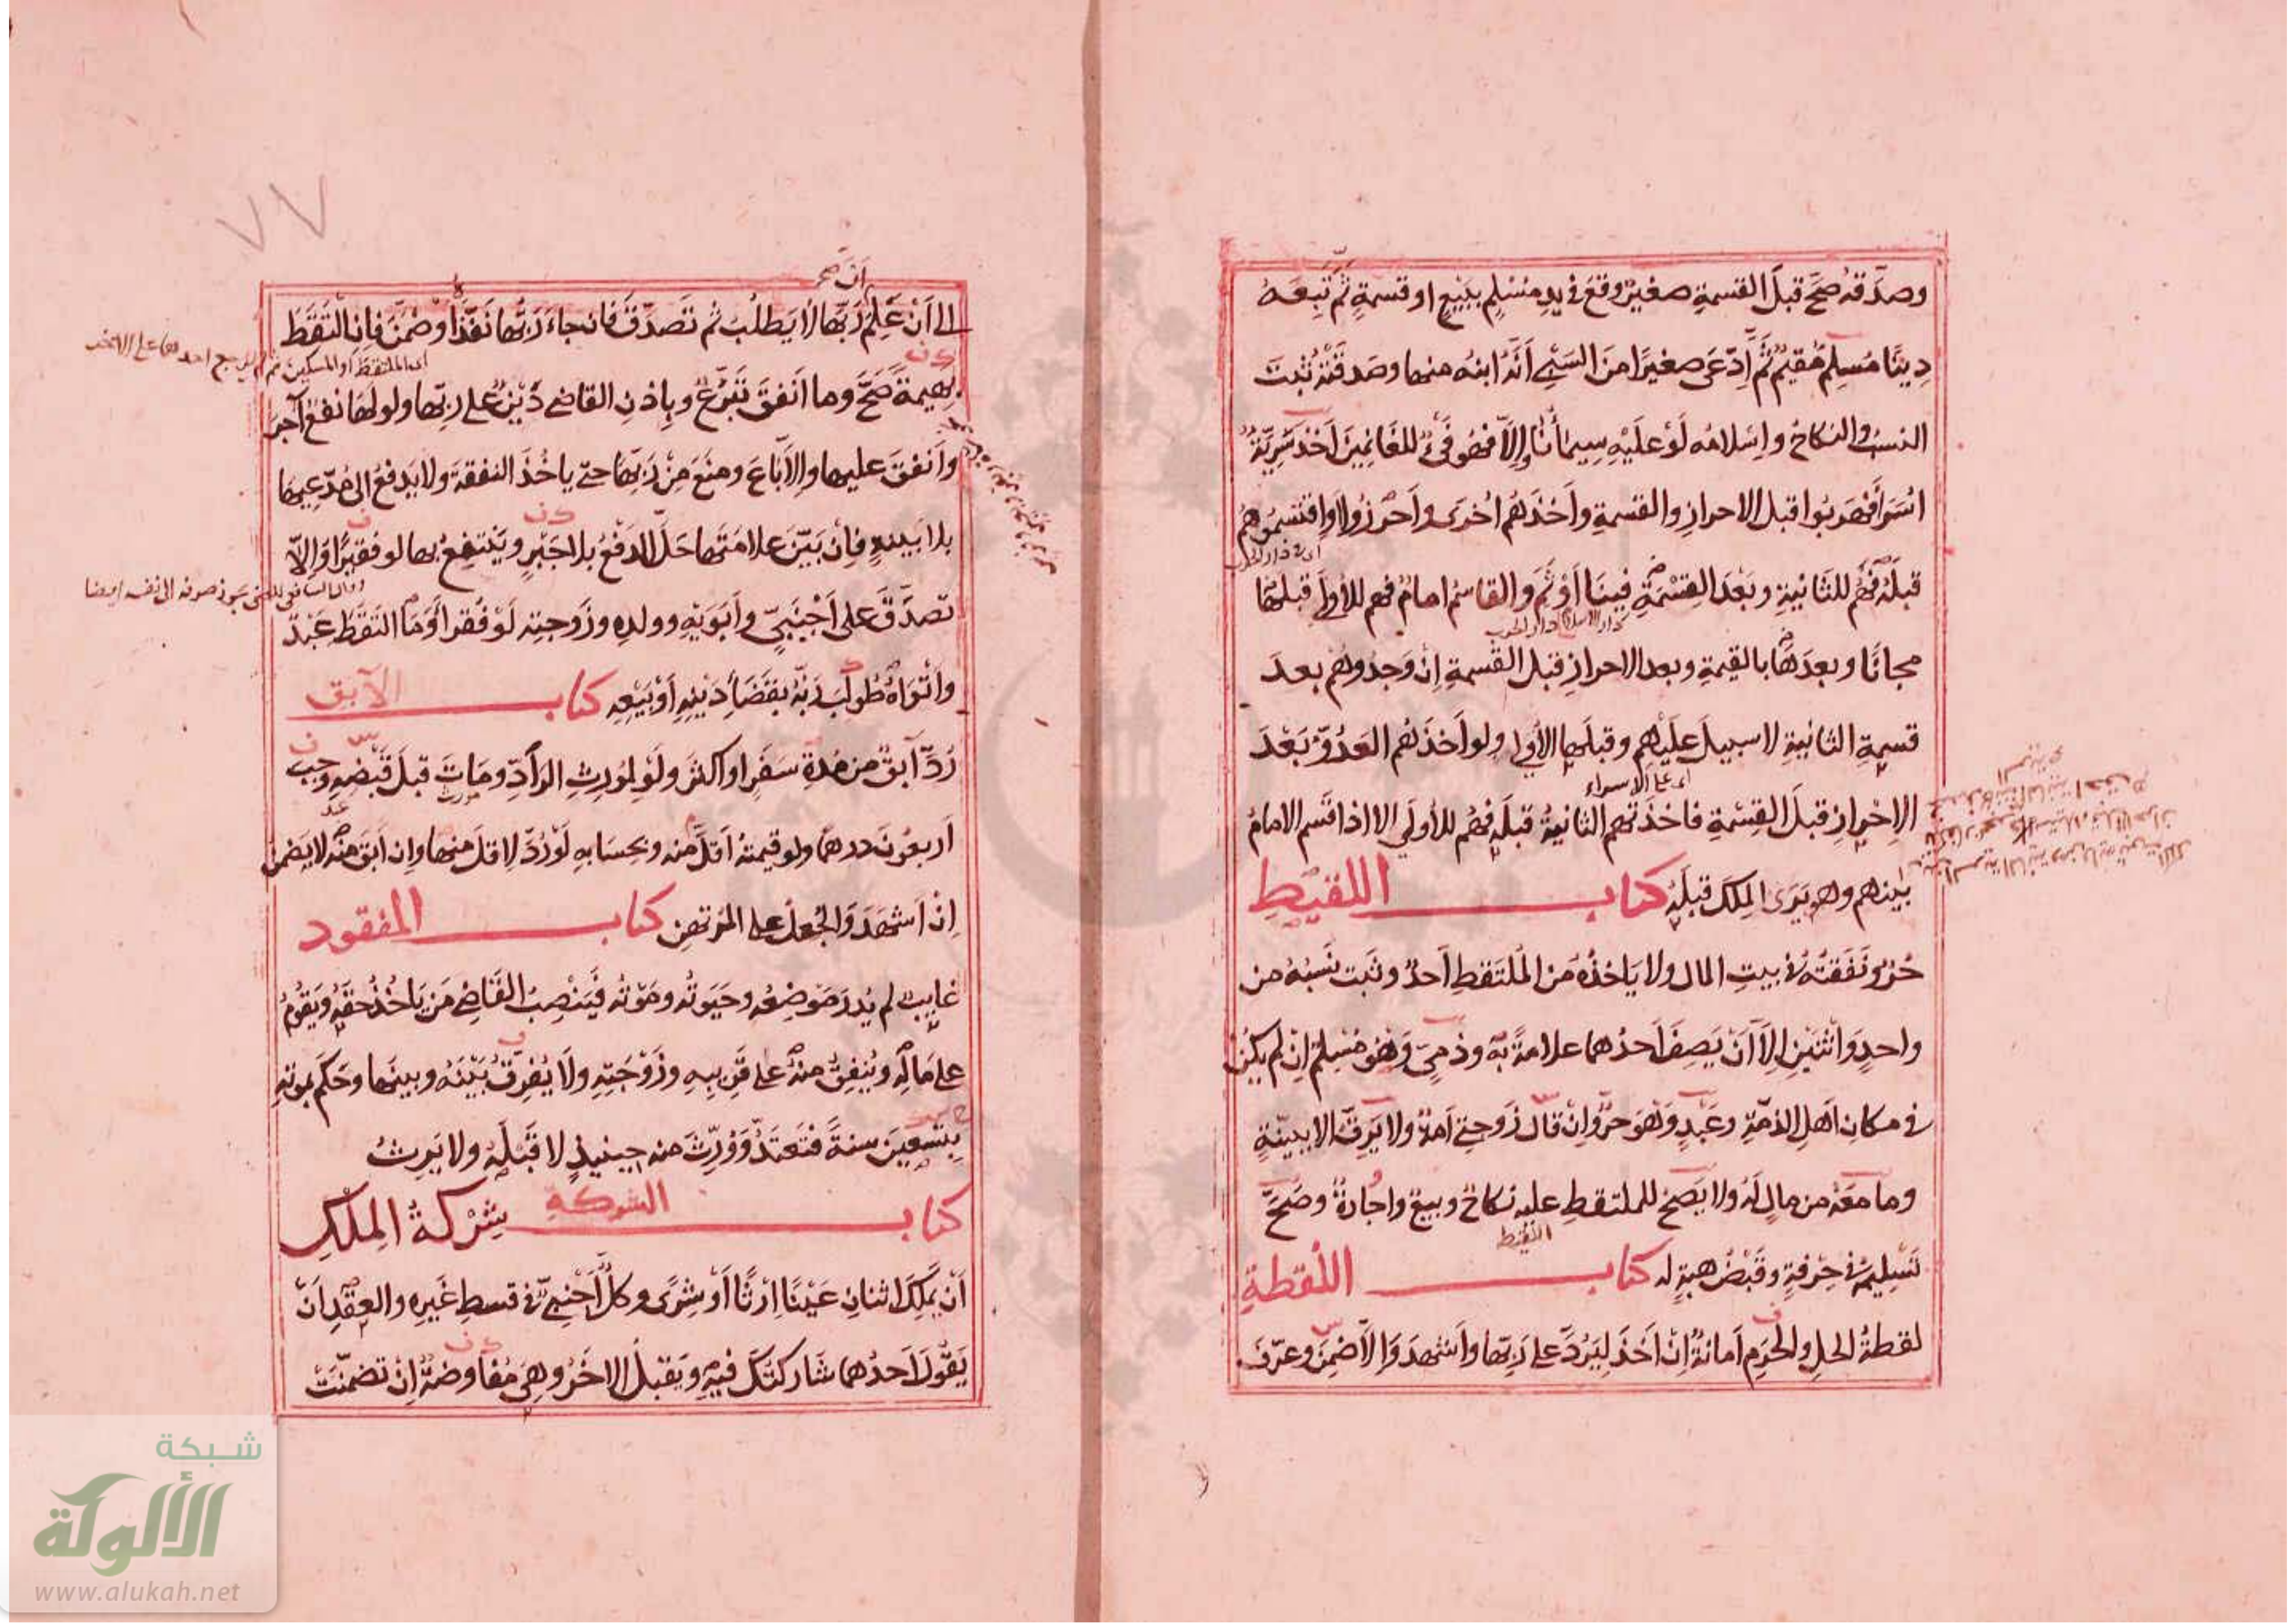 وصدقه صح قبل القسمة صغير وقع في يد مسلم ببيع او قسمة ثم تبعه
دينا مسلم مقيم ثم ادعى صغيرا من السبي أنه ابنه منها وصدقته ثبت
النسب والنكاح واسلامه لو عليه سيمانا والا فهو فيء للغانمين اخذ سرية
اسرا فهربوا قبل الاحراز والقسمة واخذهم اخرى واحرزوا او اقتسموهم
قبله فهم للثانية وبعد القسمة فينا او ثم والقاسم امام فهم للأولى قبلها
مجانا وبعدها بالقيمة وبعد الاحراز قبل القسمة ان وجدوهم بعد
قسمة الثانية لا سبيل عليهم وقبلها الأولى ولو أخذهم العدو بعد
اى على الاسراء
الاحراز قبل القسمة فاخذتهم الثانية قبله فهم للأولى الا اذا قسم الامام
بينهم وهو يرى الملك قبله كتاب اللقيط
حر ونفقته في بيت المال ولا ياخذه من الملتقط احد وثبت نسبه من
واحد واثنين الا أن يصف احدهما علامة به وذمي وهو مسلم ان لم يكن
في مكان اهل الذمة وعبد وهو حر وان قال زوجتي امة ولا يرق الا ببينة
وما معه من مال له ولا يصح للملتقط عليه نكاح وبيع واجارة وصح
اللقيط
تسليمه في حرفة وقبض هبة له كتاب اللقطة
لقطة الحل والحرم امانة ان اخذ ليرد على ربها واشهد والا ضمن وعرف
٧٧
الى أن علم ربها لا يطلب ثم تصدق فان جاء ربها نفذ او ضمن فان التقط
اى الملتقط او المسكين
بهيمة صح وما انفق تبرع وباذن القاضي دين على ربها ولو لها نفع آجر
وانفق عليها والا باع ومنع من ربها حتى ياخذ النفقة ولا يدفع الى مدعيها
بلا بينة فان بين علامتها حل الدفع بلا جبر وينتفع بها لو فقيرا والا
تصدق على أجنبي وأبويه وولده وزوجته لو فقرا وما التقط عبد
واتواه طولب ربه بقضا دينه أو بيعه كتاب الآبق
رد آبق من مدة سفر او اكثر ولو لمورث الراد ومات قبل قبضه وجب
اربعون درهما ولو قيمته أقل منه وبحسابه لو رد لاقل منها وان ابق منه لا يضمن
ان اشهد والجعل على المرتهن كتاب المفقود
غايب لم يدر موضعه وحيوته وموته فينصب القاضي من ياخذ حقه ويقوم
على ماله وينفق منه على قريبه وزوجته ولا يفرق بينه وبينها وحكم بموته
بتسعين سنة فتعتد وورث منه حينئذ لا قبله ولا يرث
كتاب الشركة شركة الملك
أن يملك اثنان عينا ارثا أو شرى وكل أجنبي في قسط غيره والعقد أن
يقول احدهما شاركتك فيه ويقبل الاخر وهي مفاوضة ان تضمنت
شبكة
الألوكة
www.alukah.net